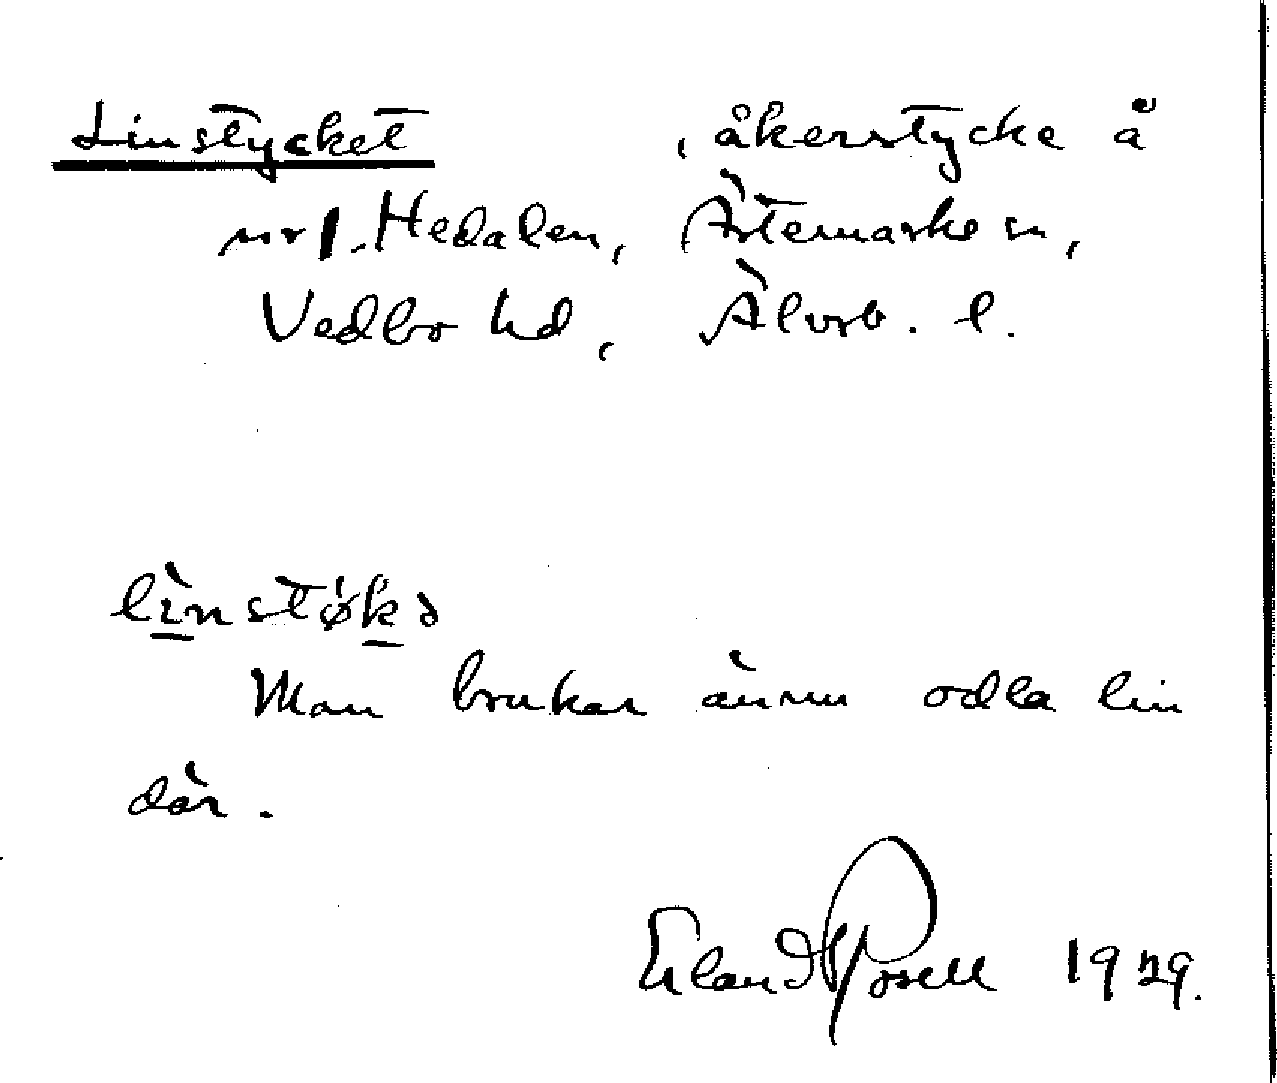 Linstycket , åkerstycke å
nr 1. Hedalen, Ärtemarken,
Vedbo hd, Älvsb. l.
lìnstø̀kə
Man brukar ännu odla lin
där.
Erland Rosell 1929.